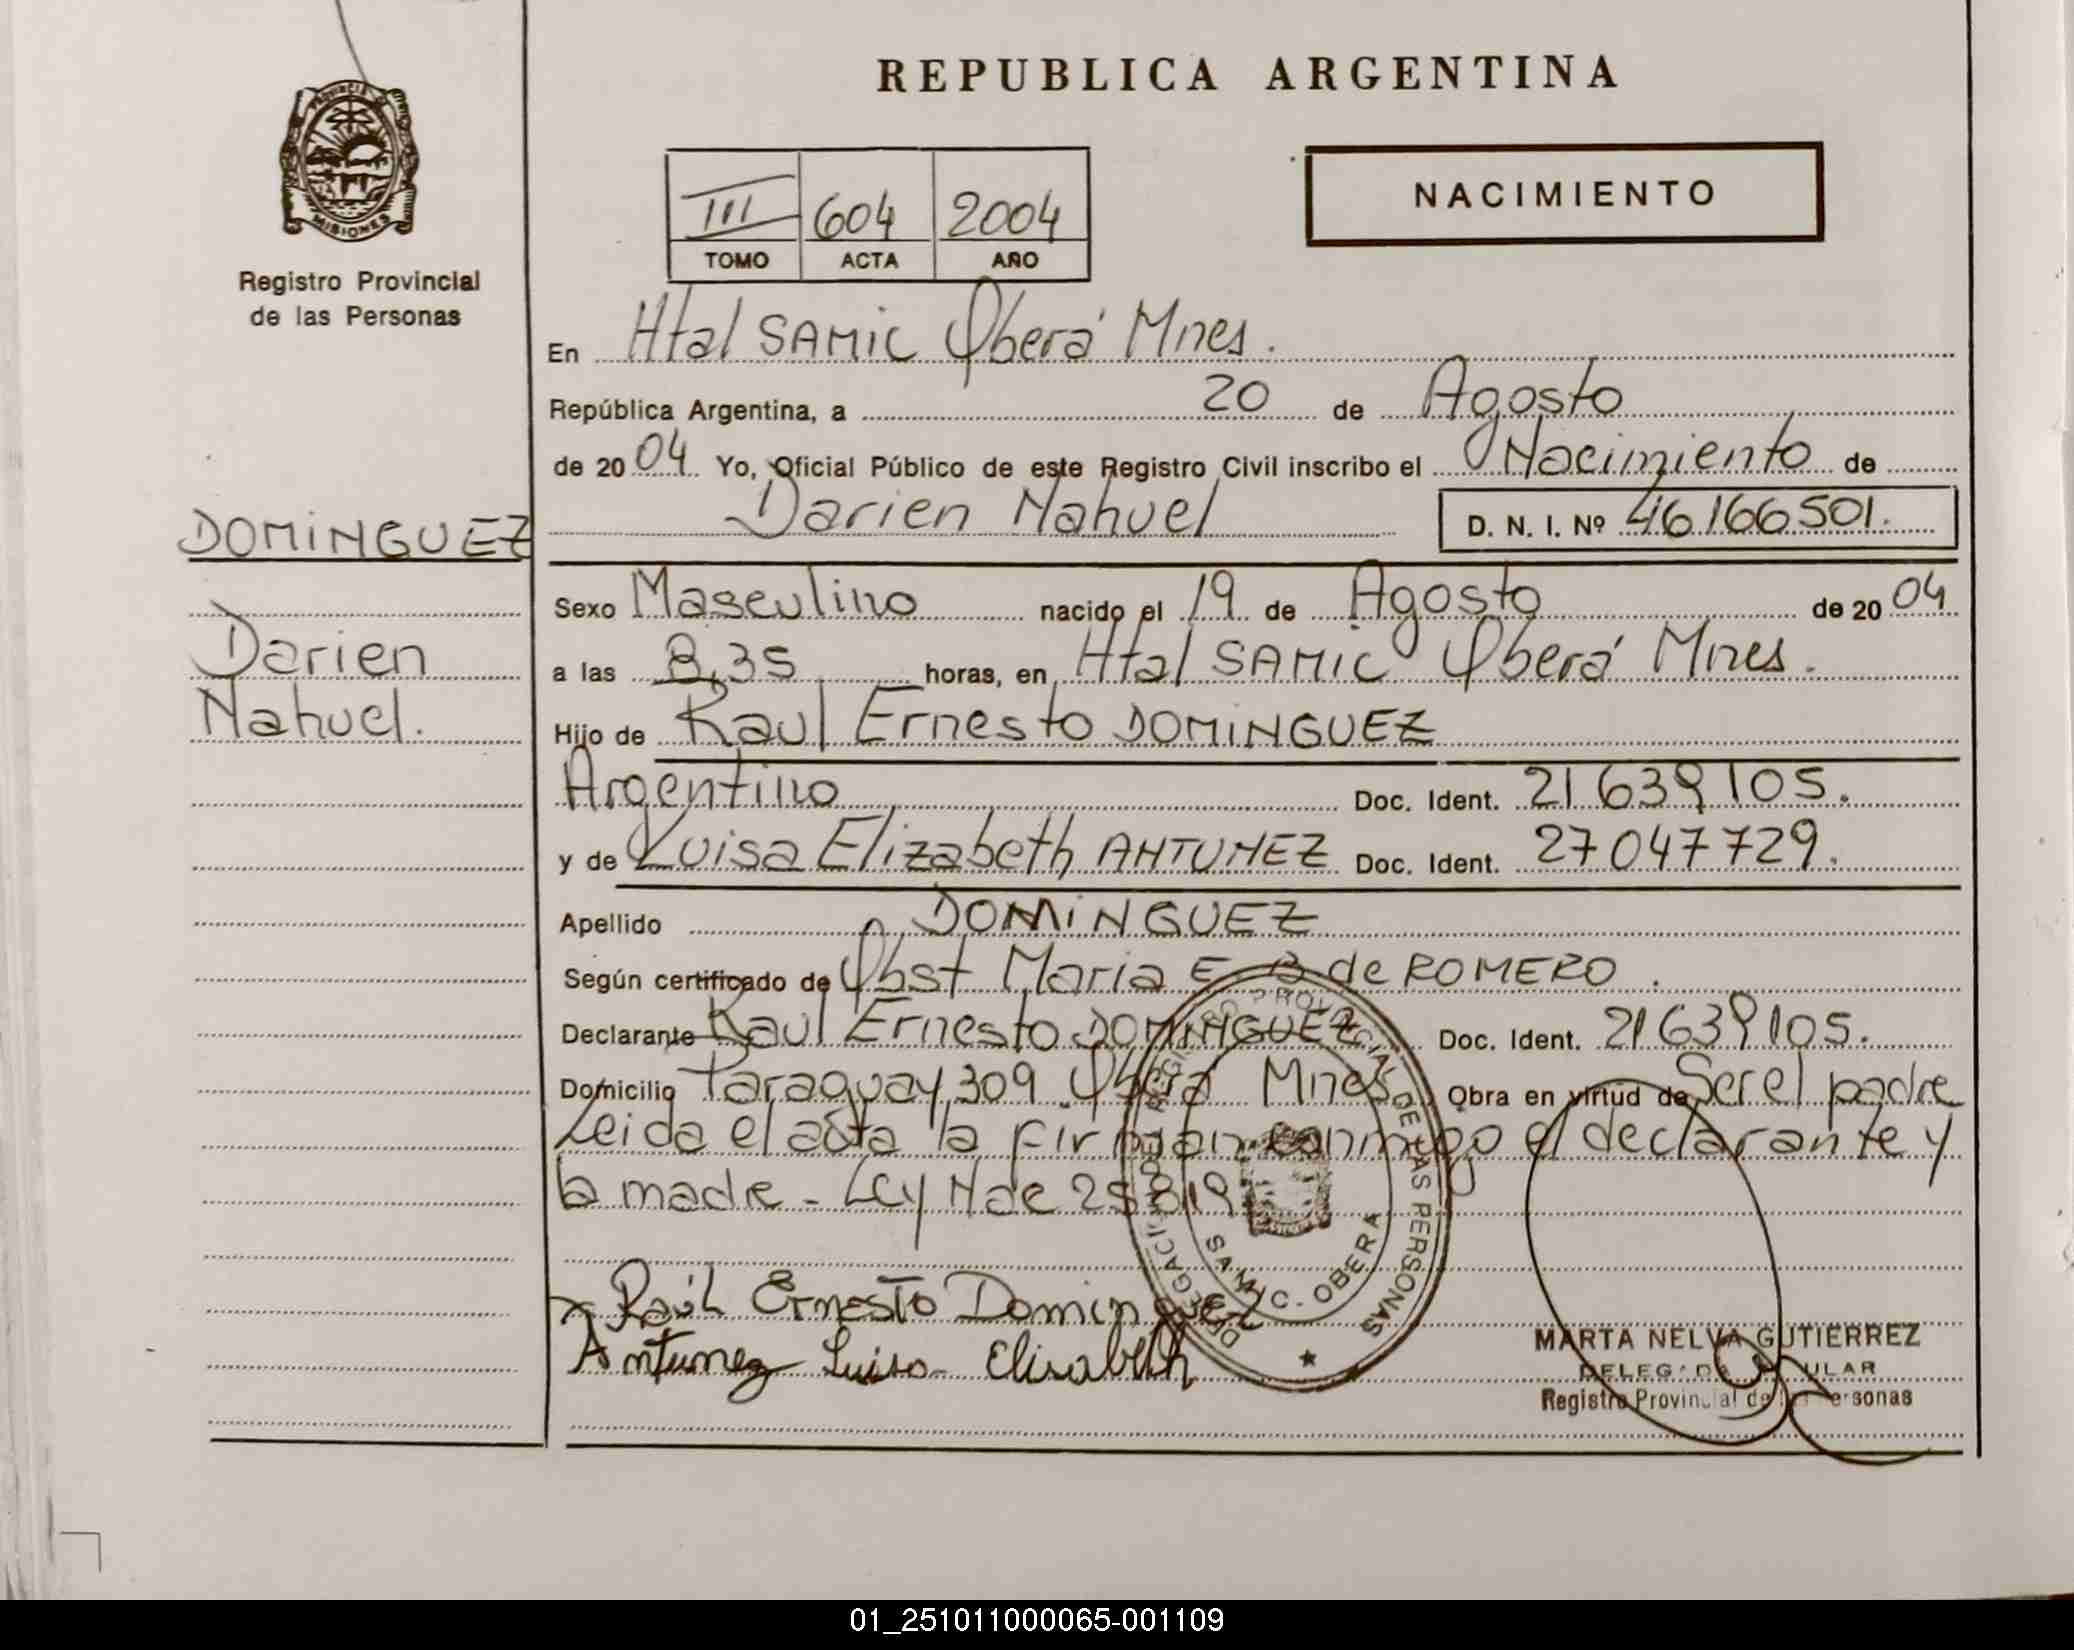 REPUBLICA ARGENTINA
PROVINCIA DE
MISIONES
Registro Provincial
de las Personas
NACIMIENTO
III 604 2004
TOMO ACTA AÑO
En Htal SAMIC Oberá Mnes.
República Argentina, a 20 de Agosto
de 2004 Yo, Oficial Público de este Registro Civil inscribo el Nacimiento de
Darien Nahuel D. N. I. Nº 46166501.
DOMINGUEZ
Darien
Nahuel.
Sexo Masculino nacido el 19 de Agosto de 2004
a las 8,35 horas, en Htal SAMIC Oberá Mnes.
Hijo de Raul Ernesto DOMINGUEZ
Argentino Doc. Ident. 21639105.
y de Luisa Elizabeth ANTUNEZ Doc. Ident. 27047729.
Apellido DOMINGUEZ
Según certificado de Obst Maria E B de ROMERO.
Declarante Raul Ernesto DOMINGUEZ Doc. Ident. 21639105.
Domicilio Paraguay 309 Oberá Mnes Obra en virtud de Ser el padre
Leida el acta la firman conmigo el declarante y
la madre - Ley N de 25819
Raúl Ernesto Dominguez
Antunez Luisa Elisabeth
REGISTRO PROVINCIAL DE LAS PERSONAS
SAMIC - OBERA
MARTA NELVA GUTIERREZ
Registro Provincial de
01_251011000065-001109